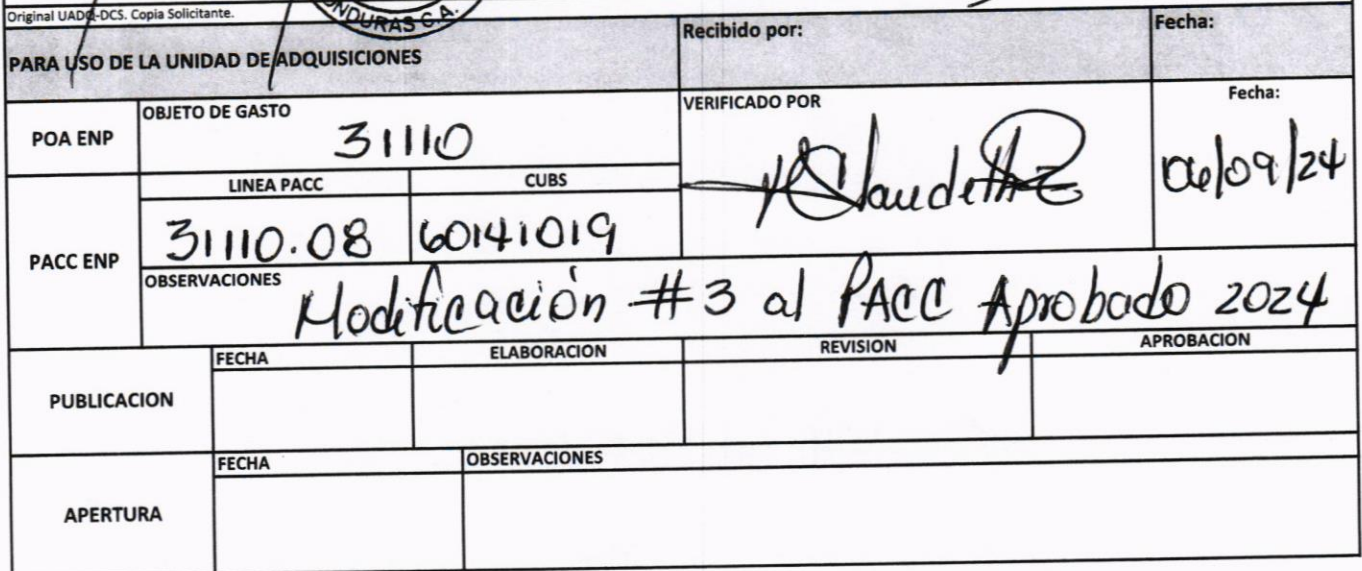 Original UADQ-DCS. Copia Solicitante.
ONDURAS C.A.
PARA USO DE LA UNIDAD DE ADQUISICIONES
Recibido por:
Fecha:
POA ENP
OBJETO DE GASTO
31110
VERIFICADO POR
Fecha:
06/09/24
PACC ENP
LINEA PACC
CUBS
31110.08
60141019
OBSERVACIONES
Modificación #3 al PACC Aprobado 2024
PUBLICACION
FECHA
ELABORACION
REVISION
APROBACION
APERTURA
FECHA
OBSERVACIONES